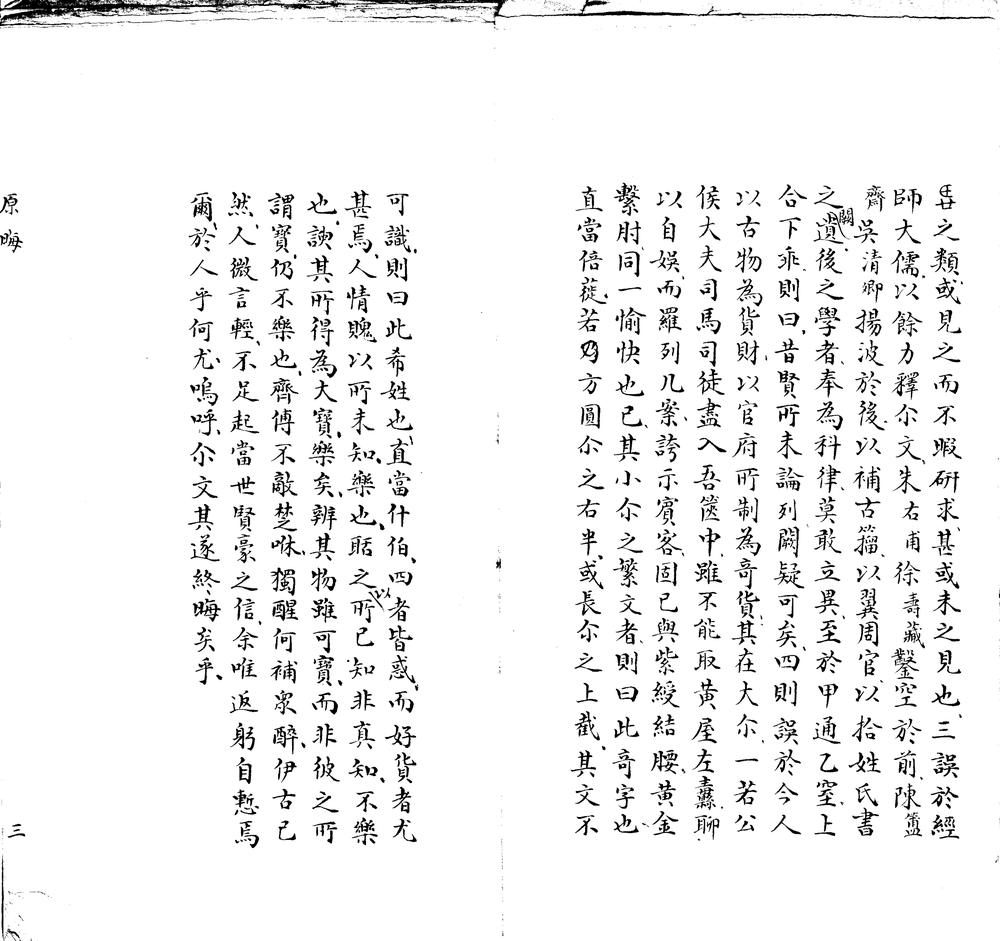 之類或見之而不暇研求甚或未之見也三誤於經
師大儒以餘力釋尒文朱右甫徐壽藏鑿空於前陳簠
齋吳清卿揚波於後以補古籀以翼周官以拾姓氏書
之遺闕後之學者奉為科律莫敢立異至於甲通乙窒上
合下乖則曰昔賢所未論列闕疑可矣四則誤於今人
以古物為貨財以官府所制為奇貨其在大尒一若公
侯大夫司馬司徒盡入吾篋中雖不能取黃屋左纛聊
以自娛而羅列几案誇示賓客固已與紫綬結腰黃金
繫肘同一愉快也已其小尒之繁文者則曰此奇字也
直當倍蓰若乃方圓尒之右半或長尒之上截其文不
可識則曰此希姓也直當什伯四者皆惑而好貨者尤
甚焉人情賤以所未知樂也聒之以所已知非真知不樂
也諛其所得為大寶樂矣辨其物雖可寶而非彼之所
謂寶仍不樂也齊傅不敵楚咻獨醒何補眾醉伊古已
然人微言輕不足起當世賢豪之信余唯返躬自慙焉
爾於人乎何尤嗚呼尒文其遂終晦矣乎
原晦
三